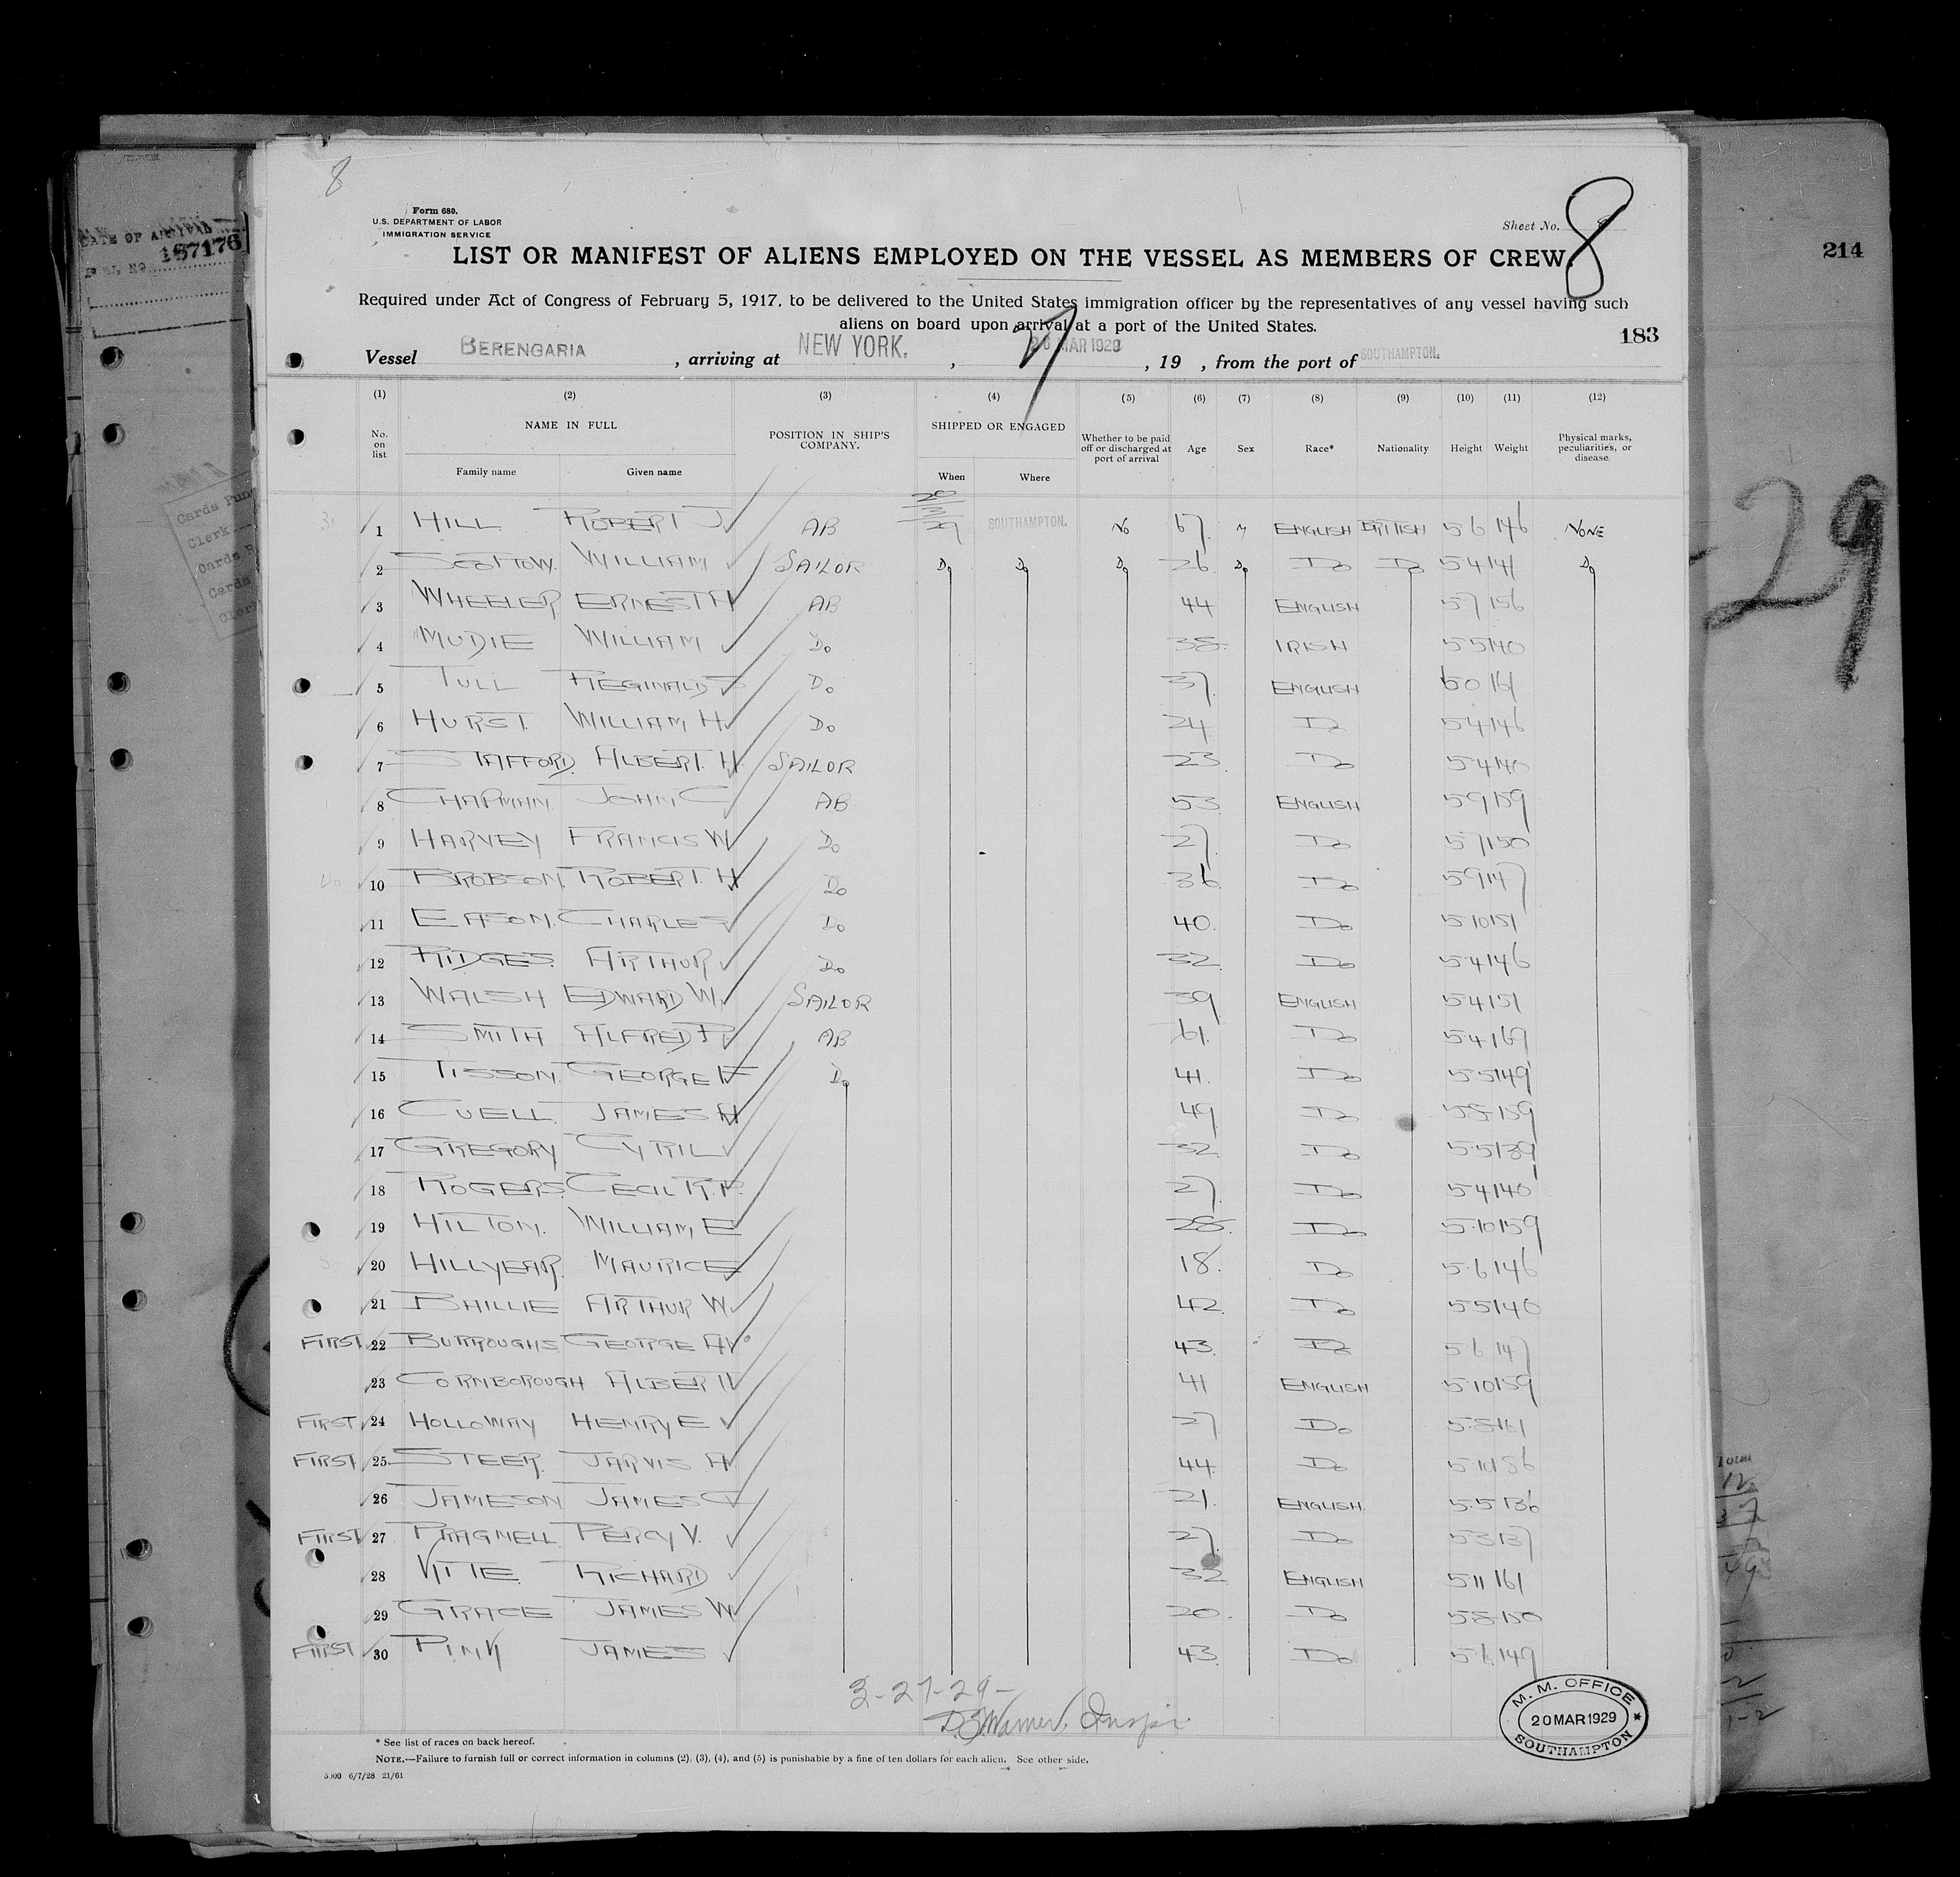 8
Form 680.
U.S. DEPARTMENT OF LABOR
IMMIGRATION SERVICE
Sheet No. 8
LIST OR MANIFEST OF ALIENS EMPLOYED ON THE VESSEL AS MEMBERS OF CREW.
Required under Act of Congress of February 5, 1917, to be delivered to the United States immigration officer by the representatives of any vessel having such
aliens on board upon arrival at a port of the United States.
183
214
DATE OF ARRIVAL
187176
Vessel BERENGARIA, arriving at NEW YORK, 26 MAR 1929, 19 , from the port of SOUTHAMPTON.
7
29
(1) (2) (3) (4) (5) (6) (7) (8) (9) (10) (11) (12)
No. on list NAME IN FULL Family name Given name POSITION IN SHIP'S COMPANY. SHIPPED OR ENGAGED When Where Whether to be paid off or discharged at port of arrival Age Sex Race* Nationality Height Weight Physical marks, peculiarities, or disease.
1 HILL ROBERT J AB SOUTHAMPTON. No 67 M ENGLISH BRITISH 5 6 146 NONE
2 SCOTTOW. WILLIAM SAILOR Do Do Do 26 Do Do Do 5 4 141 Do
3 WHEELER ERNEST H AB 44 ENGLISH 5 7 156
4 MUDIE WILLIAM Do 38 IRISH 5 5 140
5 TULL REGINALD Do 37 ENGLISH 6 0 161
6 HURST. WILLIAM H Do 24 Do 5 4 146
7 STAFFORD. ALBERT. H. SAILOR 23 Do 5 4 140
8 CHAPMAN. JOHN C AB 53 ENGLISH 5 9 159
9 HARVEY FRANCIS W Do 27 Do 5 7 150
10 BROBSON. ROBERT. H Do 36 Do 5 9 147
11 EASON. CHARLES Do 40. Do 5 10 151
12 RIDGES. ARTHUR Do 32 Do 5 4 146
13 WALSH EDWARD W. SAILOR 39 ENGLISH 5 4 151
14 SMITH ALFRED P. AB 61. Do 5 4 169
15 TISSON. GEORGE F Do 41. Do 5 5 149
16 CUELL JAMES H 49 Do 5 8 159
17 GREGORY CYRIL 32 Do 5 5 139
18 ROGERS. CECIL R.P. 27 Do 5 4 140
19 HILTON. WILLIAM E 28 Do 5 10 159
20 HILLYEAR. MAURICE 18. Do 5 6 146
21 BAILLIE ARTHUR W. 42 Do 5 5 140
FIRST 22 BURROUGHS GEORGE A 43. Do 5 6 147
23 CORNBOROUGH ALBERT 41 ENGLISH 5 10 159
FIRST 24 HOLLOWAY HENRY E 27 Do 5 8 161
FIRST 25 STEER. JARVIS. H 44 Do 5 11 186
26 JAMESON JAMES G 21. ENGLISH. 5 5 136
FIRST 27 PRAGNELL PERCY V. 27 Do 5 3 137
28 VITTE. RICHARD 32 ENGLISH 5 11 161
29 GRACE JAMES W 20. Do 5 8 150
FIRST 30 PINK JAMES 43. Do 5 6 149
3-27-29-
Inspr.
M. M. OFFICE
20 MAR 1929
SOUTHAMPTON
* See list of races on back hereof.
NOTE.—Failure to furnish full or correct information in columns (2), (3), (4), and (5) is punishable by a fine of ten dollars for each alien. See other side.
5,000 6/7/28 21/61